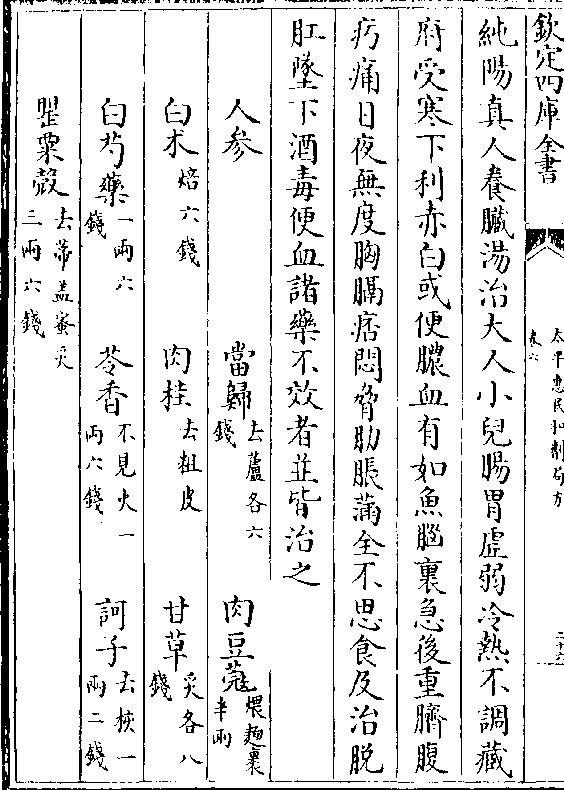 欽定四庫全書
太平惠民和劑局方
卷六
二十六
純陽真人養臟湯治大人小兒腸胃虛弱冷熱不調藏
府受寒下利赤白或便膿血有如魚腦裏急後重臍腹
疞痛日夜無度胸膈痞悶脅肋脹滿全不思食及治脱
肛墜下酒毒便血諸藥不效者並皆治之
人參 當歸去蘆各六錢 肉豆蔻煨麵裹半兩
白术焙六錢 肉桂去粗皮 甘草炙各八錢
白芍藥一兩六錢 苓香不見火一兩六錢 訶子去核一兩二錢
罌粟殼去蒂盖蜜炙三兩六錢